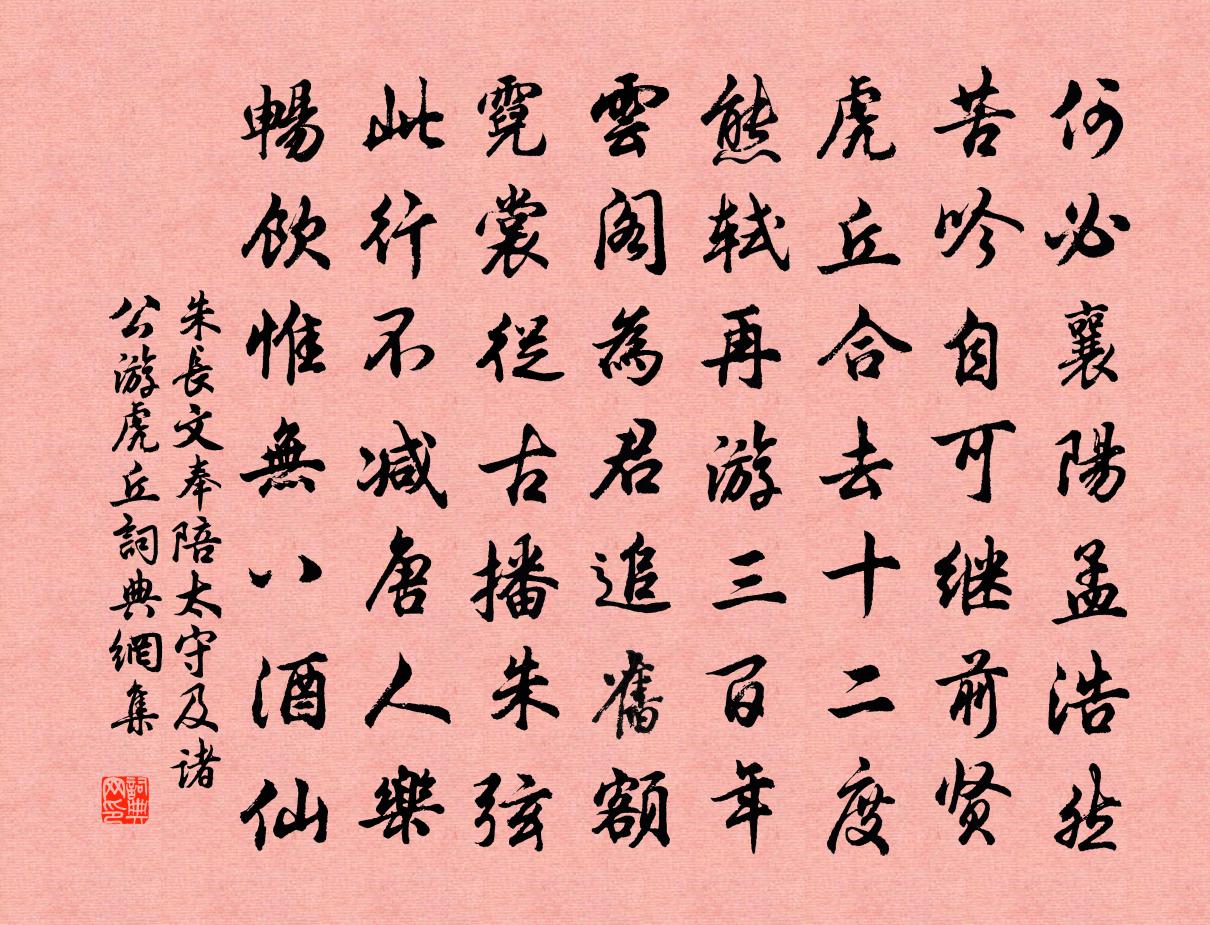 何必襄陽孟浩然
苦吟自可继前贤
虎丘合去十二度
熊轼再游三百年
雲阁為君追舊额
霓裳從古播朱弦
此行不减唐人樂
暢飲惟無八酒仙
朱長文奉陪太守及诸
公游虎丘詞典網集
詞典
网印